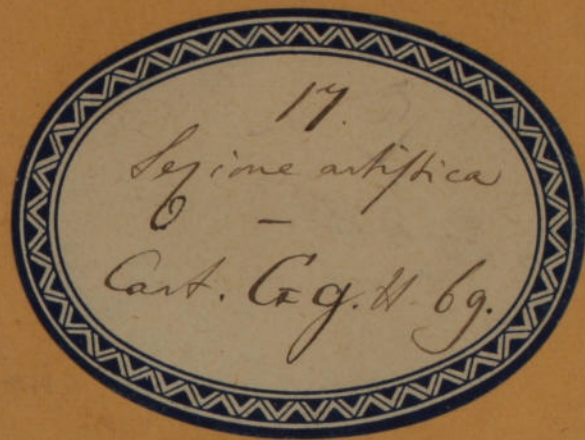 17.
Sezione artistica
–
Cart. Gg. N. 69.